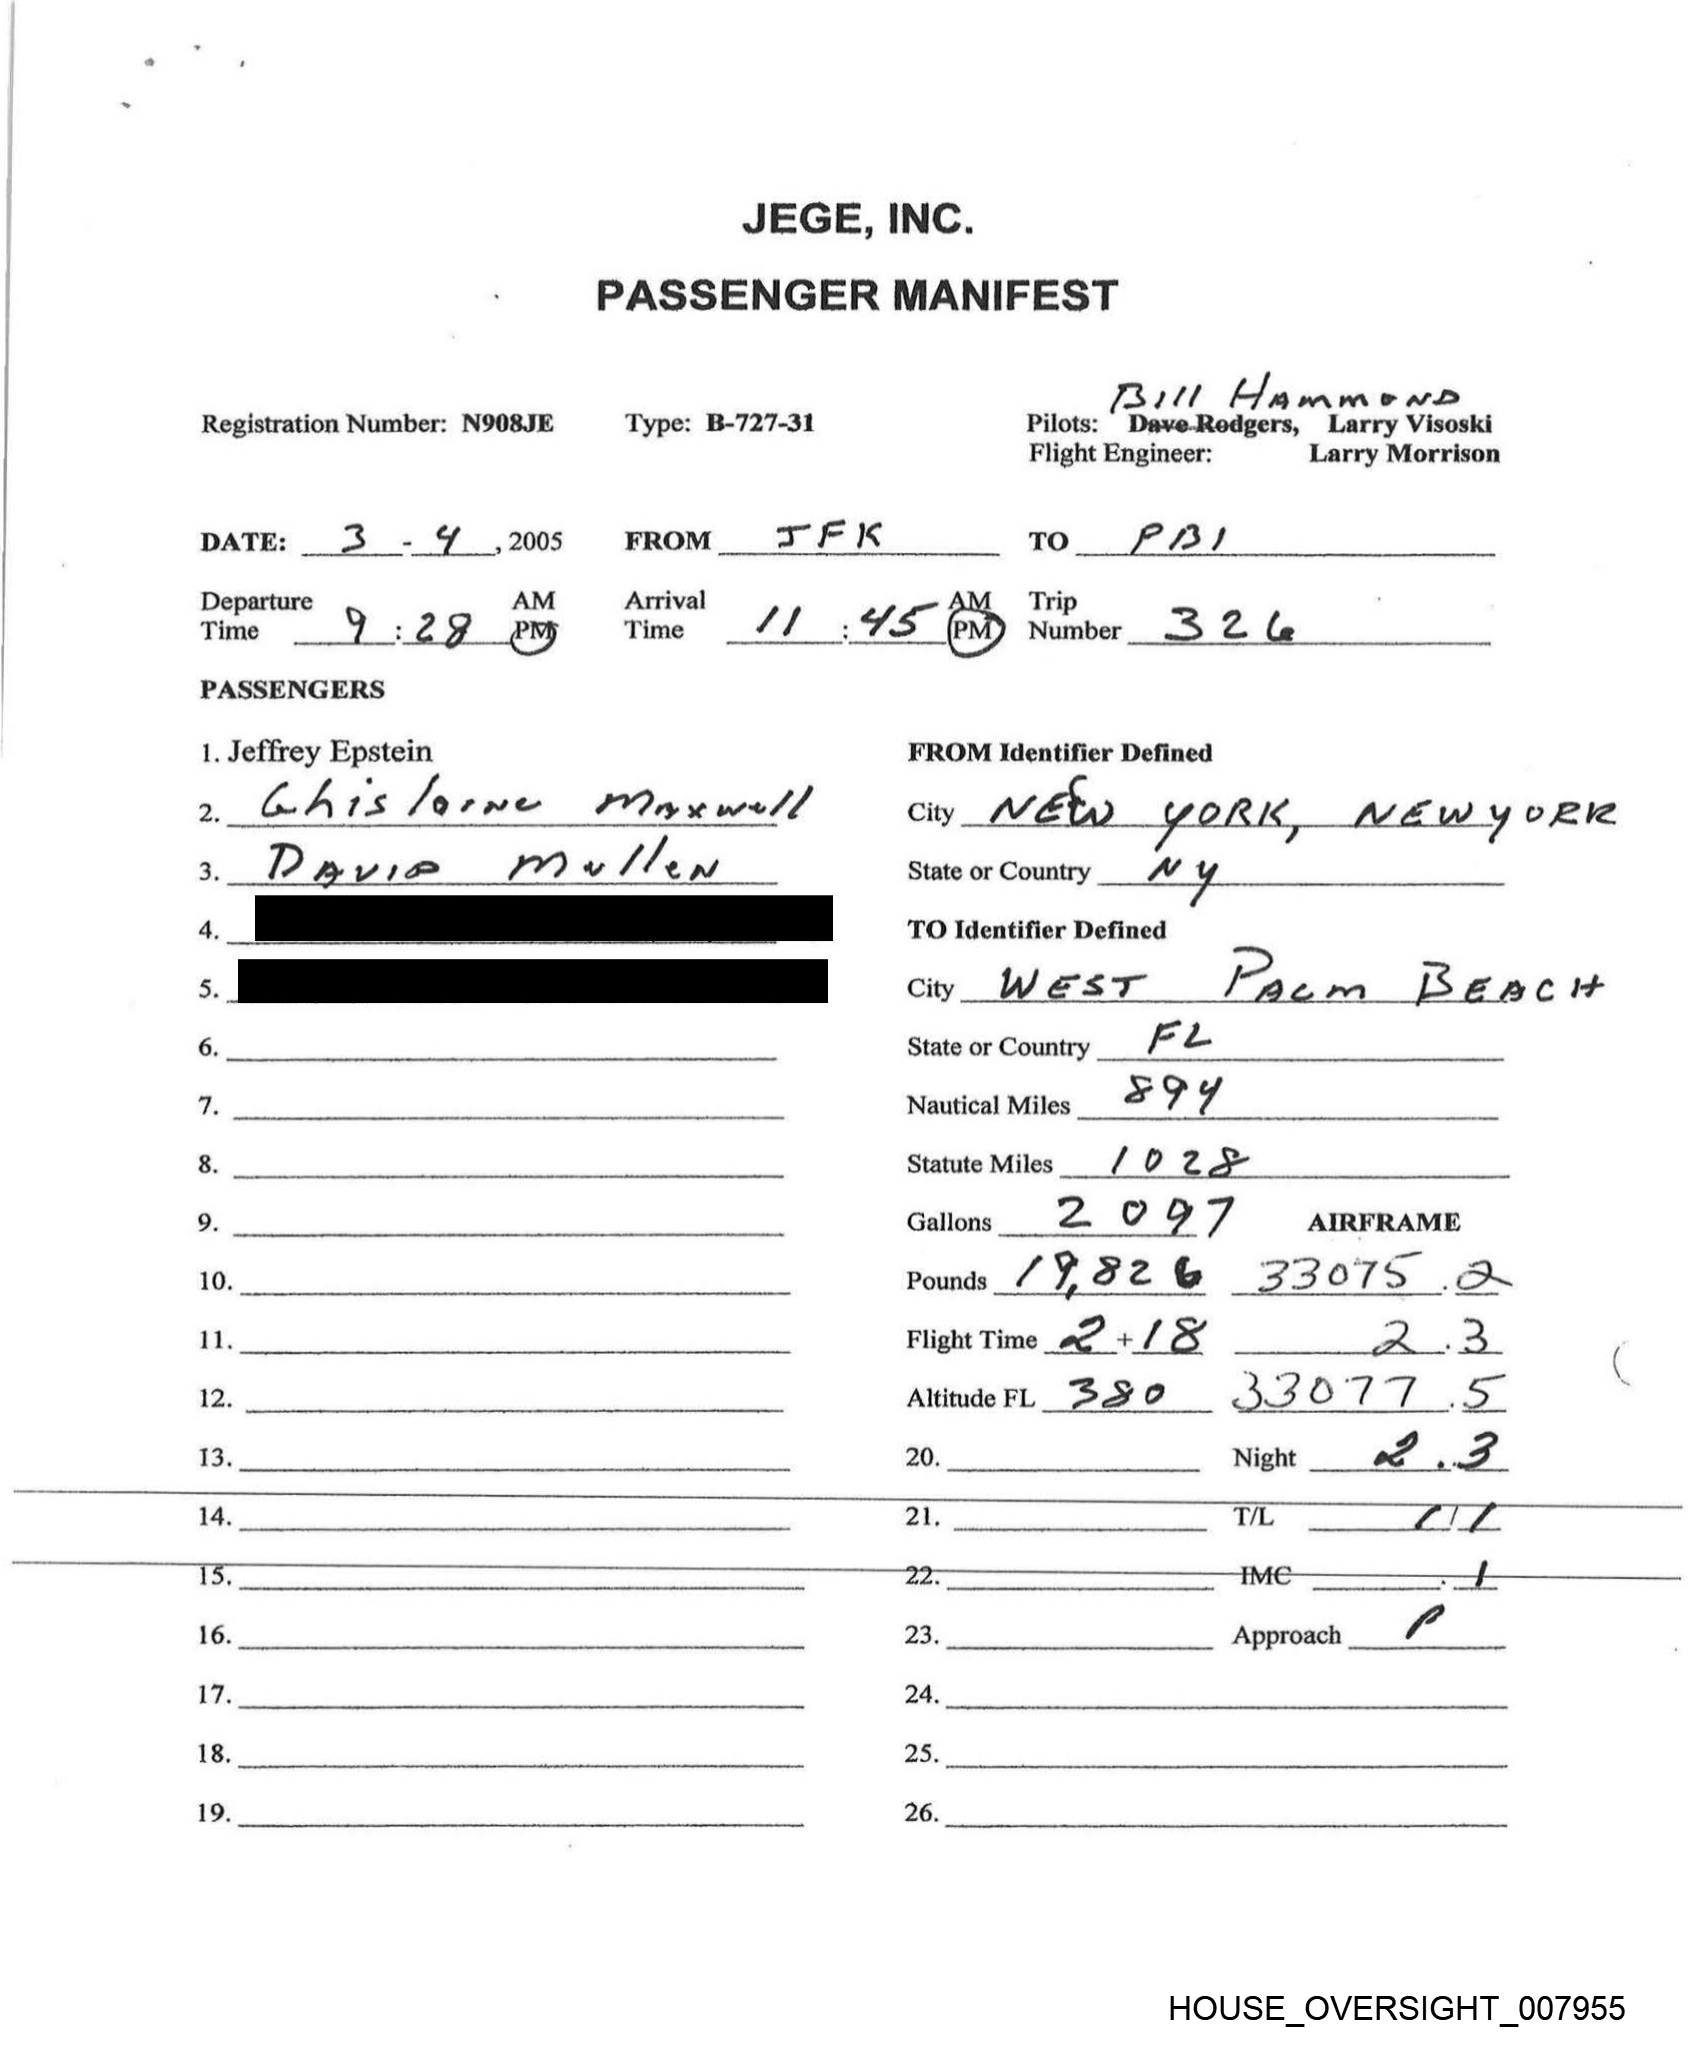 JEGE, INC.
PASSENGER MANIFEST
Bill Hammond
Registration Number: N908JE Type: B-727-31 Pilots: Dave Rodgers, Larry Visoski
Flight Engineer: Larry Morrison
DATE: 3 - 4, 2005 FROM JFK TO PBI
Departure Time 9:28 AM PM Arrival Time 11:45 AM PM Trip Number 326
PASSENGERS
1. Jeffrey Epstein FROM Identifier Defined
2. Ghislaine Maxwell City NEW YORK, NEW YORK
3. David Mullen State or Country NY
4. TO Identifier Defined
5. City WEST PALM BEACH
6. State or Country FL
7. Nautical Miles 894
8. Statute Miles 1028
9. Gallons 2097 AIRFRAME
10. Pounds 19,826 33075.2
11. Flight Time 2+18 2.3
12. Altitude FL 380 33077.5
13. 20. Night 2.3
14. 21. T/L 1/1
15. 22. IMC .1
16. 23. Approach P
17. 24.
18. 25.
19. 26.
HOUSE_OVERSIGHT_007955